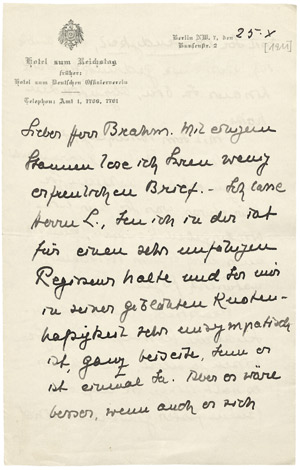 Berlin NW. 7, den 25. X
Bunsenstr. 2
[1911]
Hotel zum Reichstag
früher:
Hotel zum Deutschen Offizierverein
Telephon: Amt I, 1700, 1701
Lieber Herr Brahm. Mit einigem
Staunen lese ich Ihren wenig
erfreulichen Brief. – Ich lasse
Herrn L., den ich in der Tat
für einen sehr unfähigen
Regisseur halte und der mir
in seiner geblähten Knoten-
haftigkeit sehr unsympatisch
ist, ganz beiseite, denn er
ist einmal da. Aber es wäre
besser, wenn auch er sich